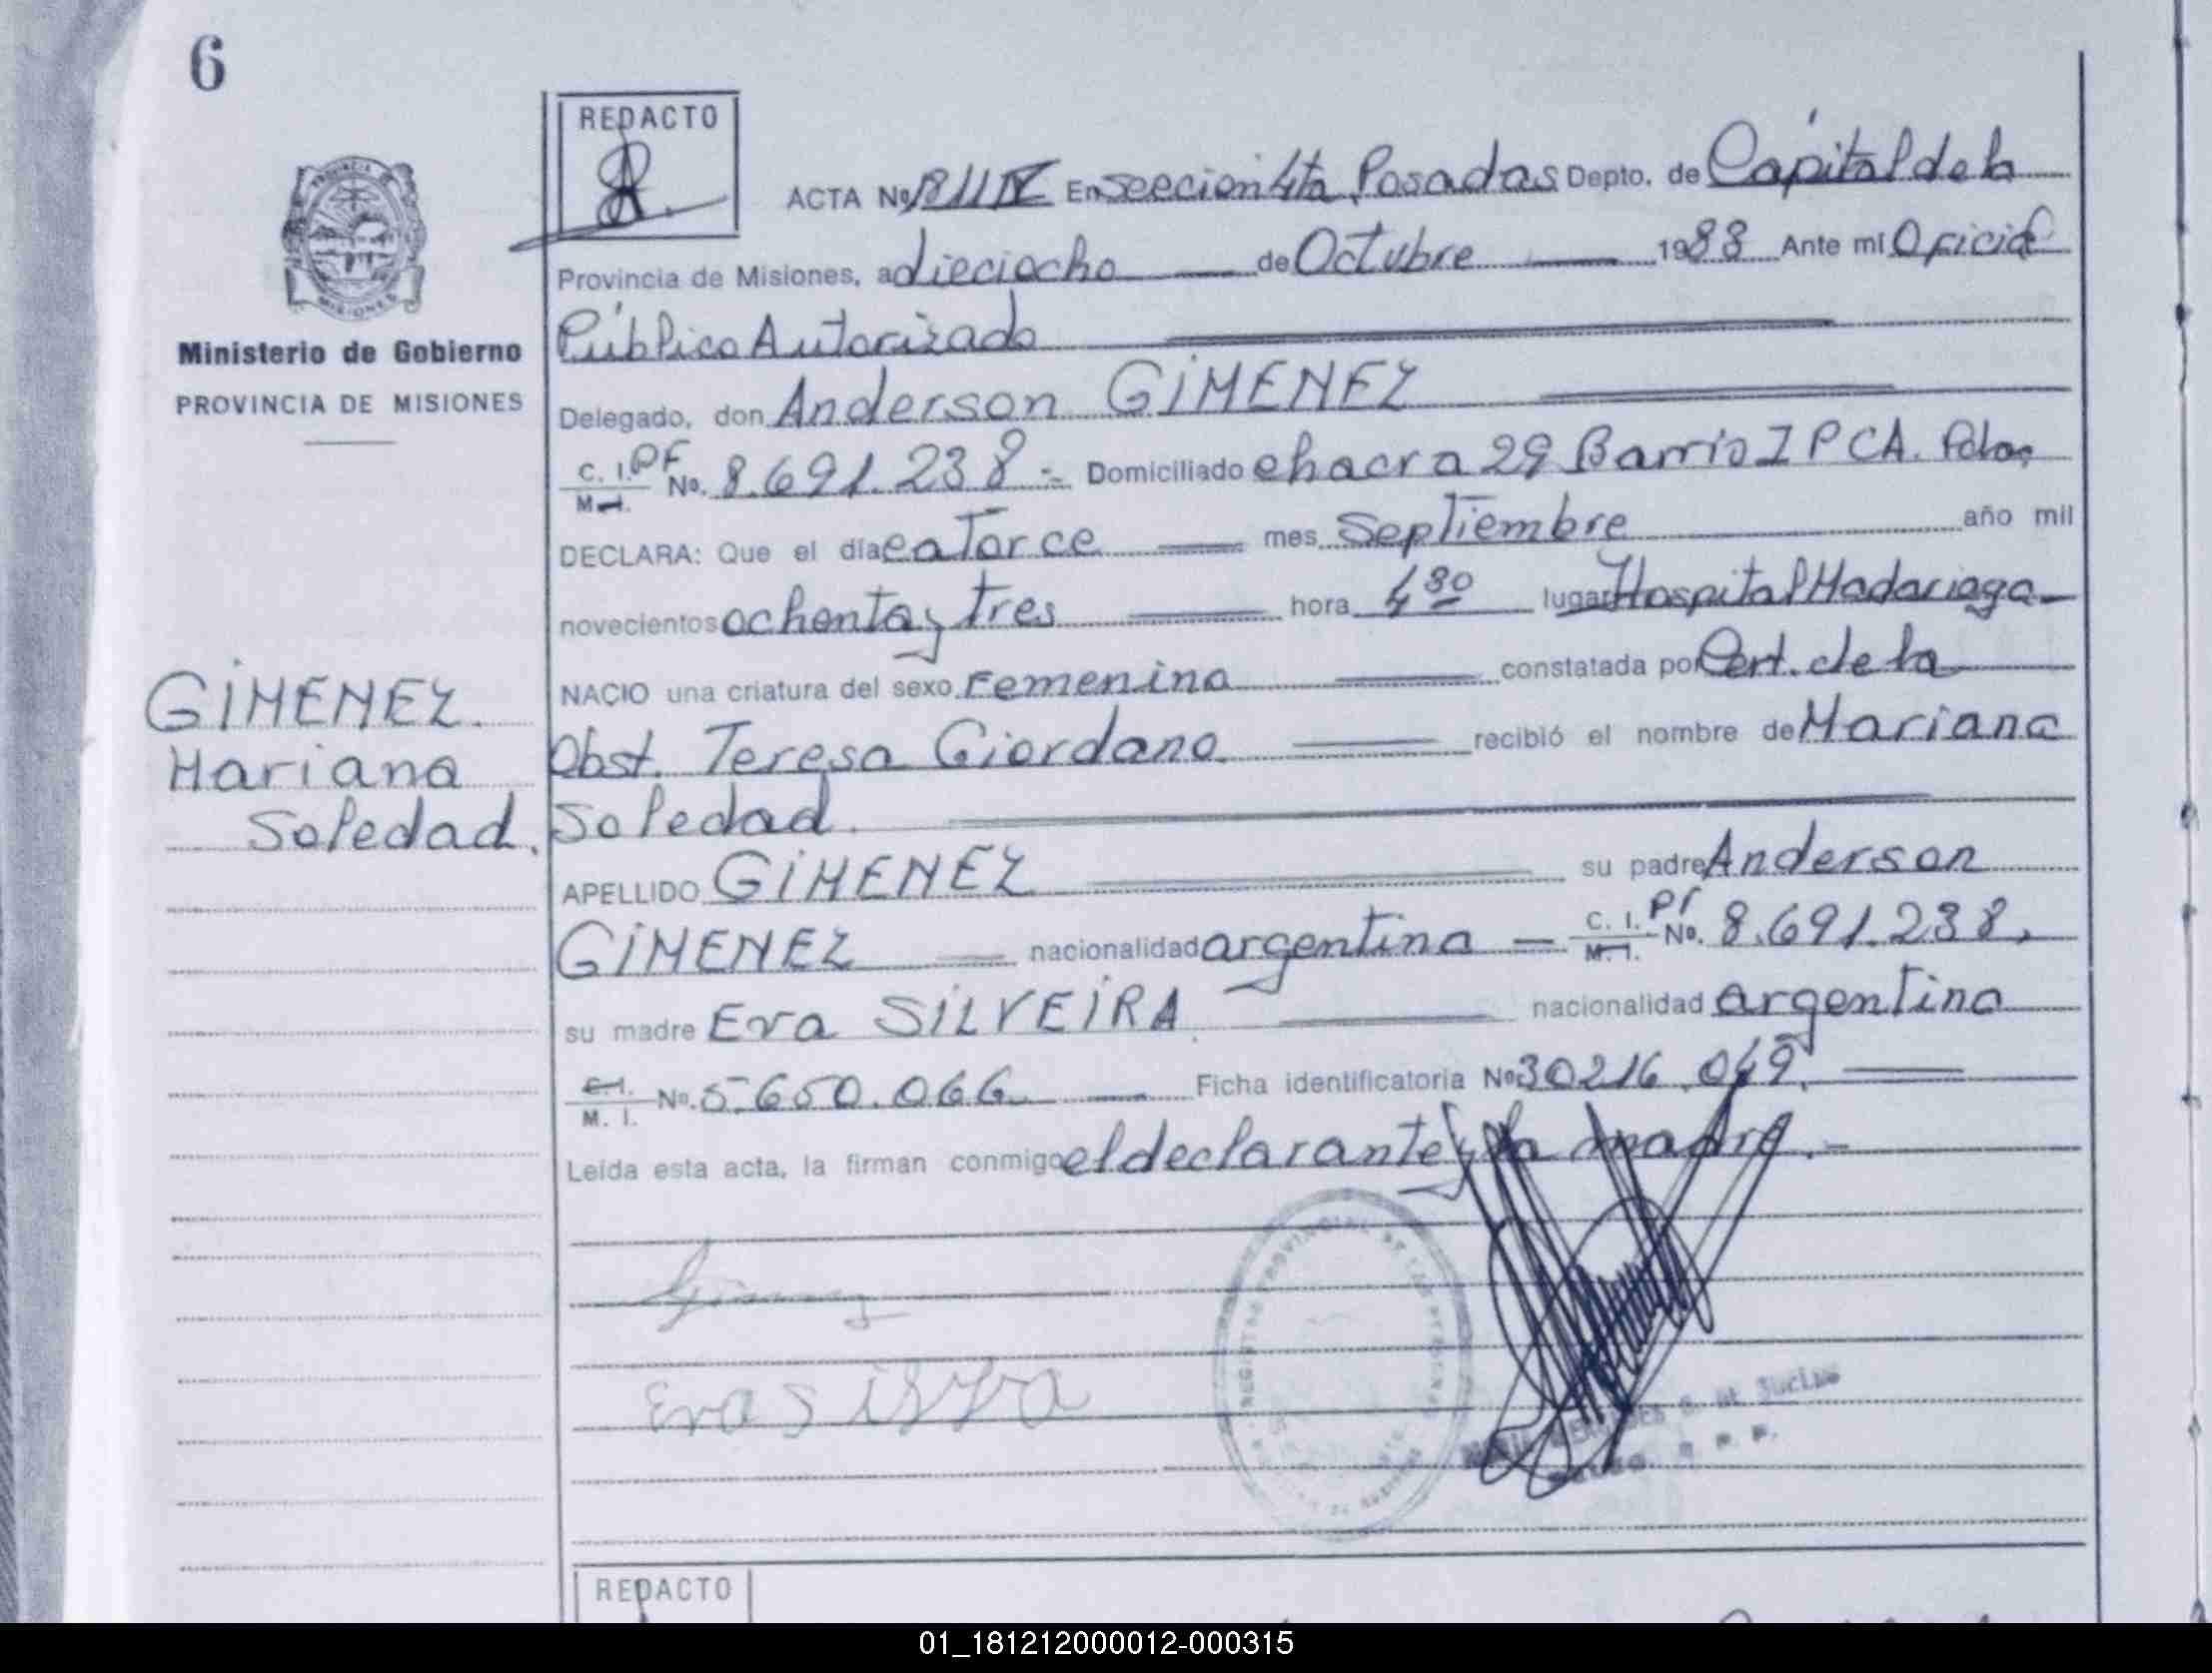 6
REDACTO
ACTA No 1811 IV En Seccion 4ta, Posadas Depto. de Capital de la
Provincia de Misiones, a dieciocho de Octubre 1983 Ante mí Oficial
Público Autorizado
Delegado, don Anderson GIMENEZ
C. I. PF M. I. No. 8.691.238 = Domiciliado chacra 29 Barrio IPCA. Pdas
DECLARA: Que el día catorce mes Septiembre año mil
novecientos ochenta y tres hora 4 30 lugar Hospital Madariaga
NACIO una criatura del sexo Femenino constatada por Cert. de la
Obst. Teresa Giordano recibió el nombre de Mariana
Soledad.
APELLIDO GIMENEZ su padre Anderson
GIMENEZ nacionalidad argentina C. I. PF M. I. No. 8.691.238,
su madre Eva SILVEIRA nacionalidad argentina
C. I. M. I. No. 5.650.066 Ficha identificatoria No 30216.049.
Leída esta acta, la firman conmigo el declarante y la madre.-
Gimenez
Eva
REGISTRO PROVINCIAL DE LAS PERSONAS
Ministerio de Gobierno
PROVINCIA DE MISIONES
GIMENEZ.
Mariana
Soledad.
REDACTO
01_181212000012-000315